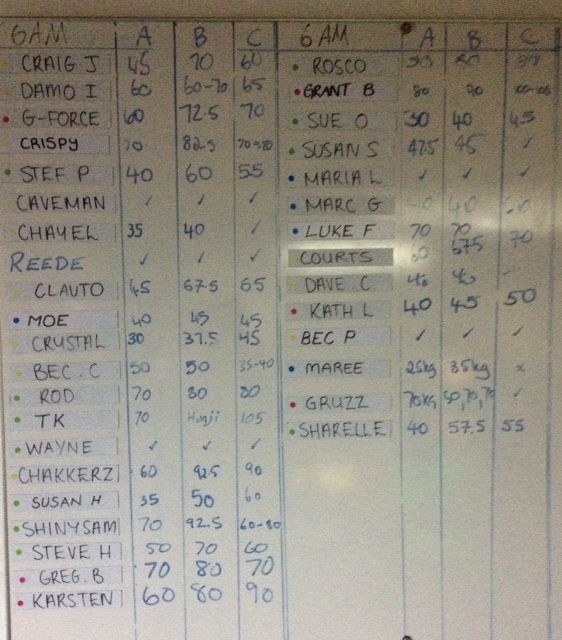 6AM A B C
CRAIG J 45 70 60
DAMO I 60 60-70 65
G-FORCE 60 72.5 70
CRISPY 70 82.5 70-80
STEF P 40 60 55
CAVEMAN ✓ ✓ ✓
CHAYEL 35 40 ✓
REEDE ✓ ✓ ✓
CLAUTO 45 67.5 65
MOE 40 45 45
CRYSTAL 30 37.5 45
BEC. C 50 50 35-40
ROD 70 80 80
TK 70 105
WAYNE ✓ ✓ ✓
CHAKKERZ 60 92.5 90
SUSAN H 35 50 60
SHINYSAM 70 92.5 60-80
STEVE H 50 70 60
GREG. B 70 80 70
KARSTEN 60 80 90
6 AM A B C
ROSCO
GRANT B 80 90
SUE O 30 40 45
SUSAN S 47.5 45 ✓
MARIA L ✓ ✓ ✓
MARC G 40 60
LUKE F 70 70 70
COURTS 60 67.5
DAVE. C 40 40
KATH L 40 45 50
BEC P ✓ ✓ ✓
MAREE 25kg 35kg x
GRUZZ 70kg 50,70,70 ✓
SHARELLE 40 57.5 55